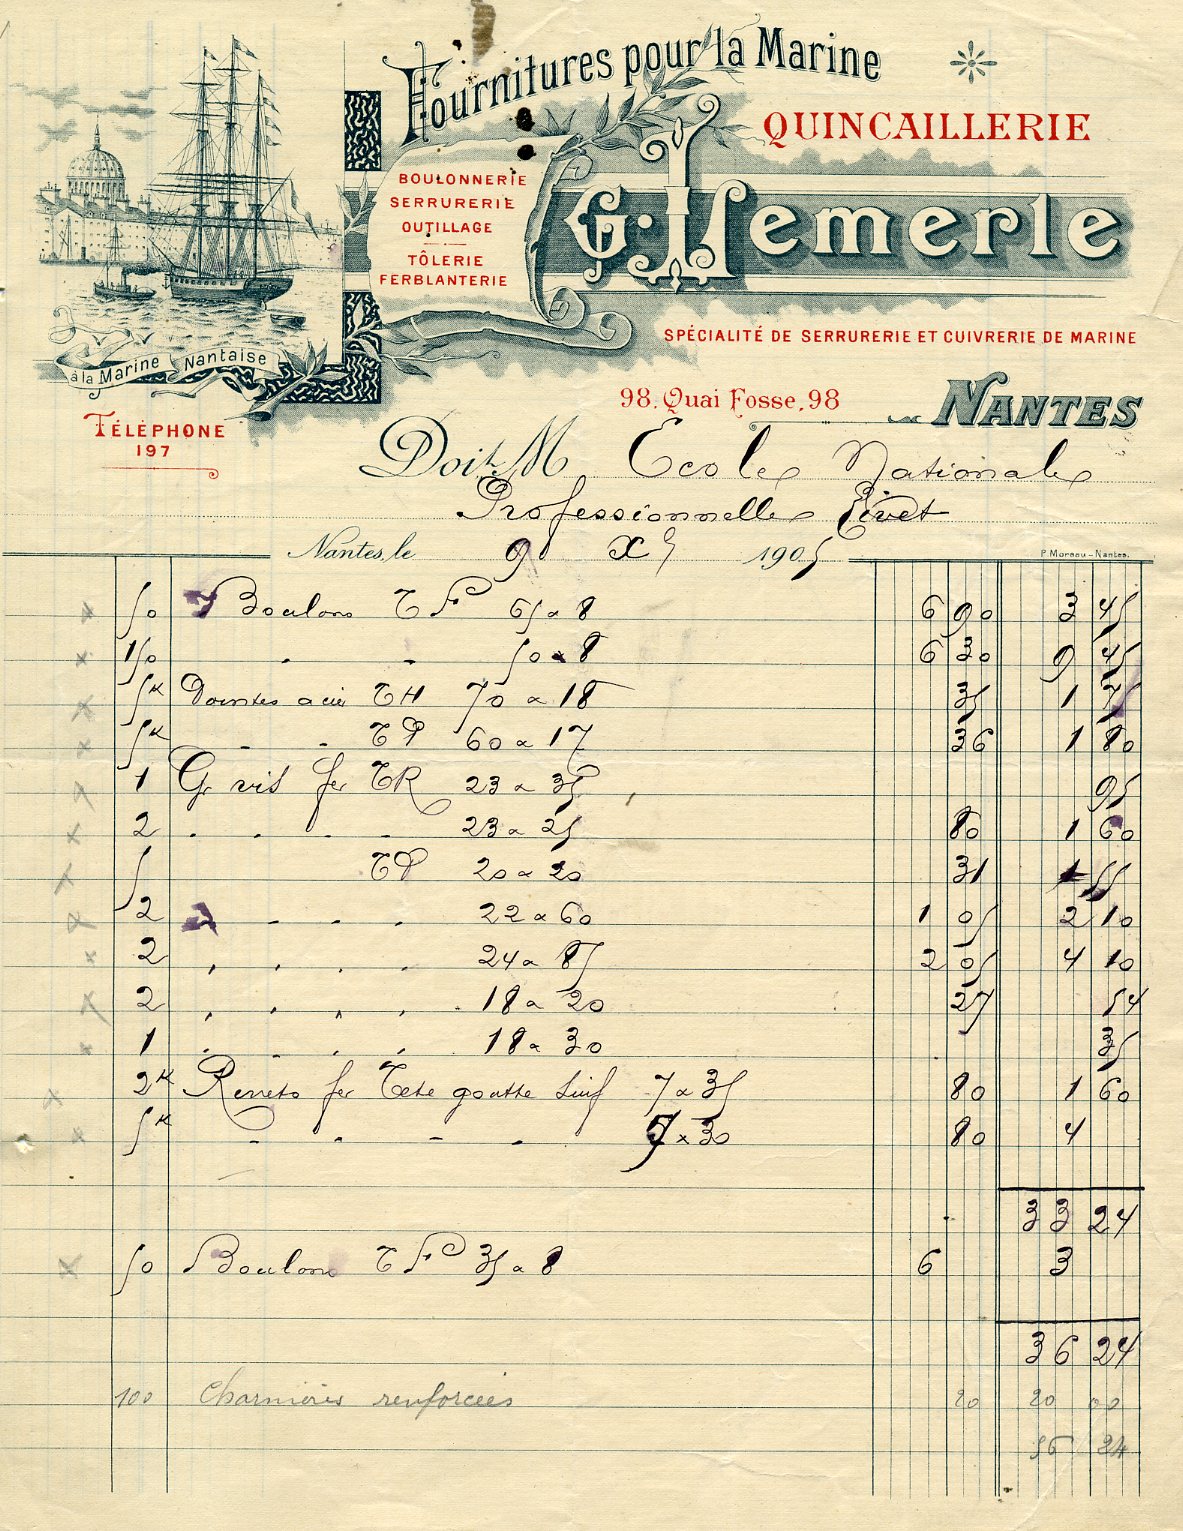 Fournitures pour la Marine
QUINCAILLERIE
BOULONNERIE
SERRURERIE
OUTILLAGE
TÔLERIE
FERBLANTERIE
G. Lemerle
SPÉCIALITÉ DE SERRURERIE ET CUIVRERIE DE MARINE
à la Marine Nantaise
98, Quai Fosse, 98
NANTES
TÉLÉPHONE
197
Doit M Ecole Nationale
Professionnelle Livet
Nantes, le 9 Xe 1905
P. Moreau - Nantes.
50 Boulons TF 65 x 8 6 90 3 45
150 " " 50 x 8 6 30 9 45
5K Pointes acier TH 70 x 18 35 1 75
5K " " TP 60 x 17 36 1 80
1 Gr vis fer TR 23 x 35 95
2 " " " " 23 x 25 80 1 60
5 TP 20 x 20 31 1 55
2 " " " 22 x 60 1 05 2 10
2 " " " " 24 x 85 2 05 4 10
2 " " " " 18 x 20 27 54
1 " " " " 18 x 30 35
2K Rivets fer Tete goutte suif 7 x 35 80 1 60
5K " " " " 7 x 30 80 4
33 24
50 Boulons TF 35 x 8 6 3
36 24
100 Charnières renforcées 20 20 00
56 24